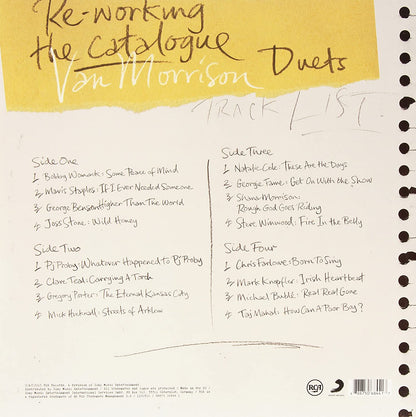 Re-working
the catalogue Duets
Van Morrison
TRACK LIST
Side One
1/ Bobby Womack: Some Peace of Mind
2/ Mavis Staples: If I Ever Needed Someone
3/ George Benson: Higher Than The World
4/ Joss Stone: Wild Honey
Side Two
1/ PJ Proby: Whatever Happened to PJ Proby
2/ Clare Teal: Carrying A Torch
3/ Gregory Porter: The Eternal Kansas City
4/ Mick Hucknall: Streets of Arklow
Side Three
1/ Natalie Cole: These Are the Days
2/ George Fame: Get On With the Show
3/ Shana Morrison:
Rough God Goes Riding
4/ Steve Winwood: Fire In the Belly
Side Four
1/ Chris Farlowe: Born To Sing
2/ Mark Knopfler: Irish Heartbeat
3/ Michael Bublé: Real Real Gone
4/ Taj Mahal: How Can A Poor Boy?
RCA